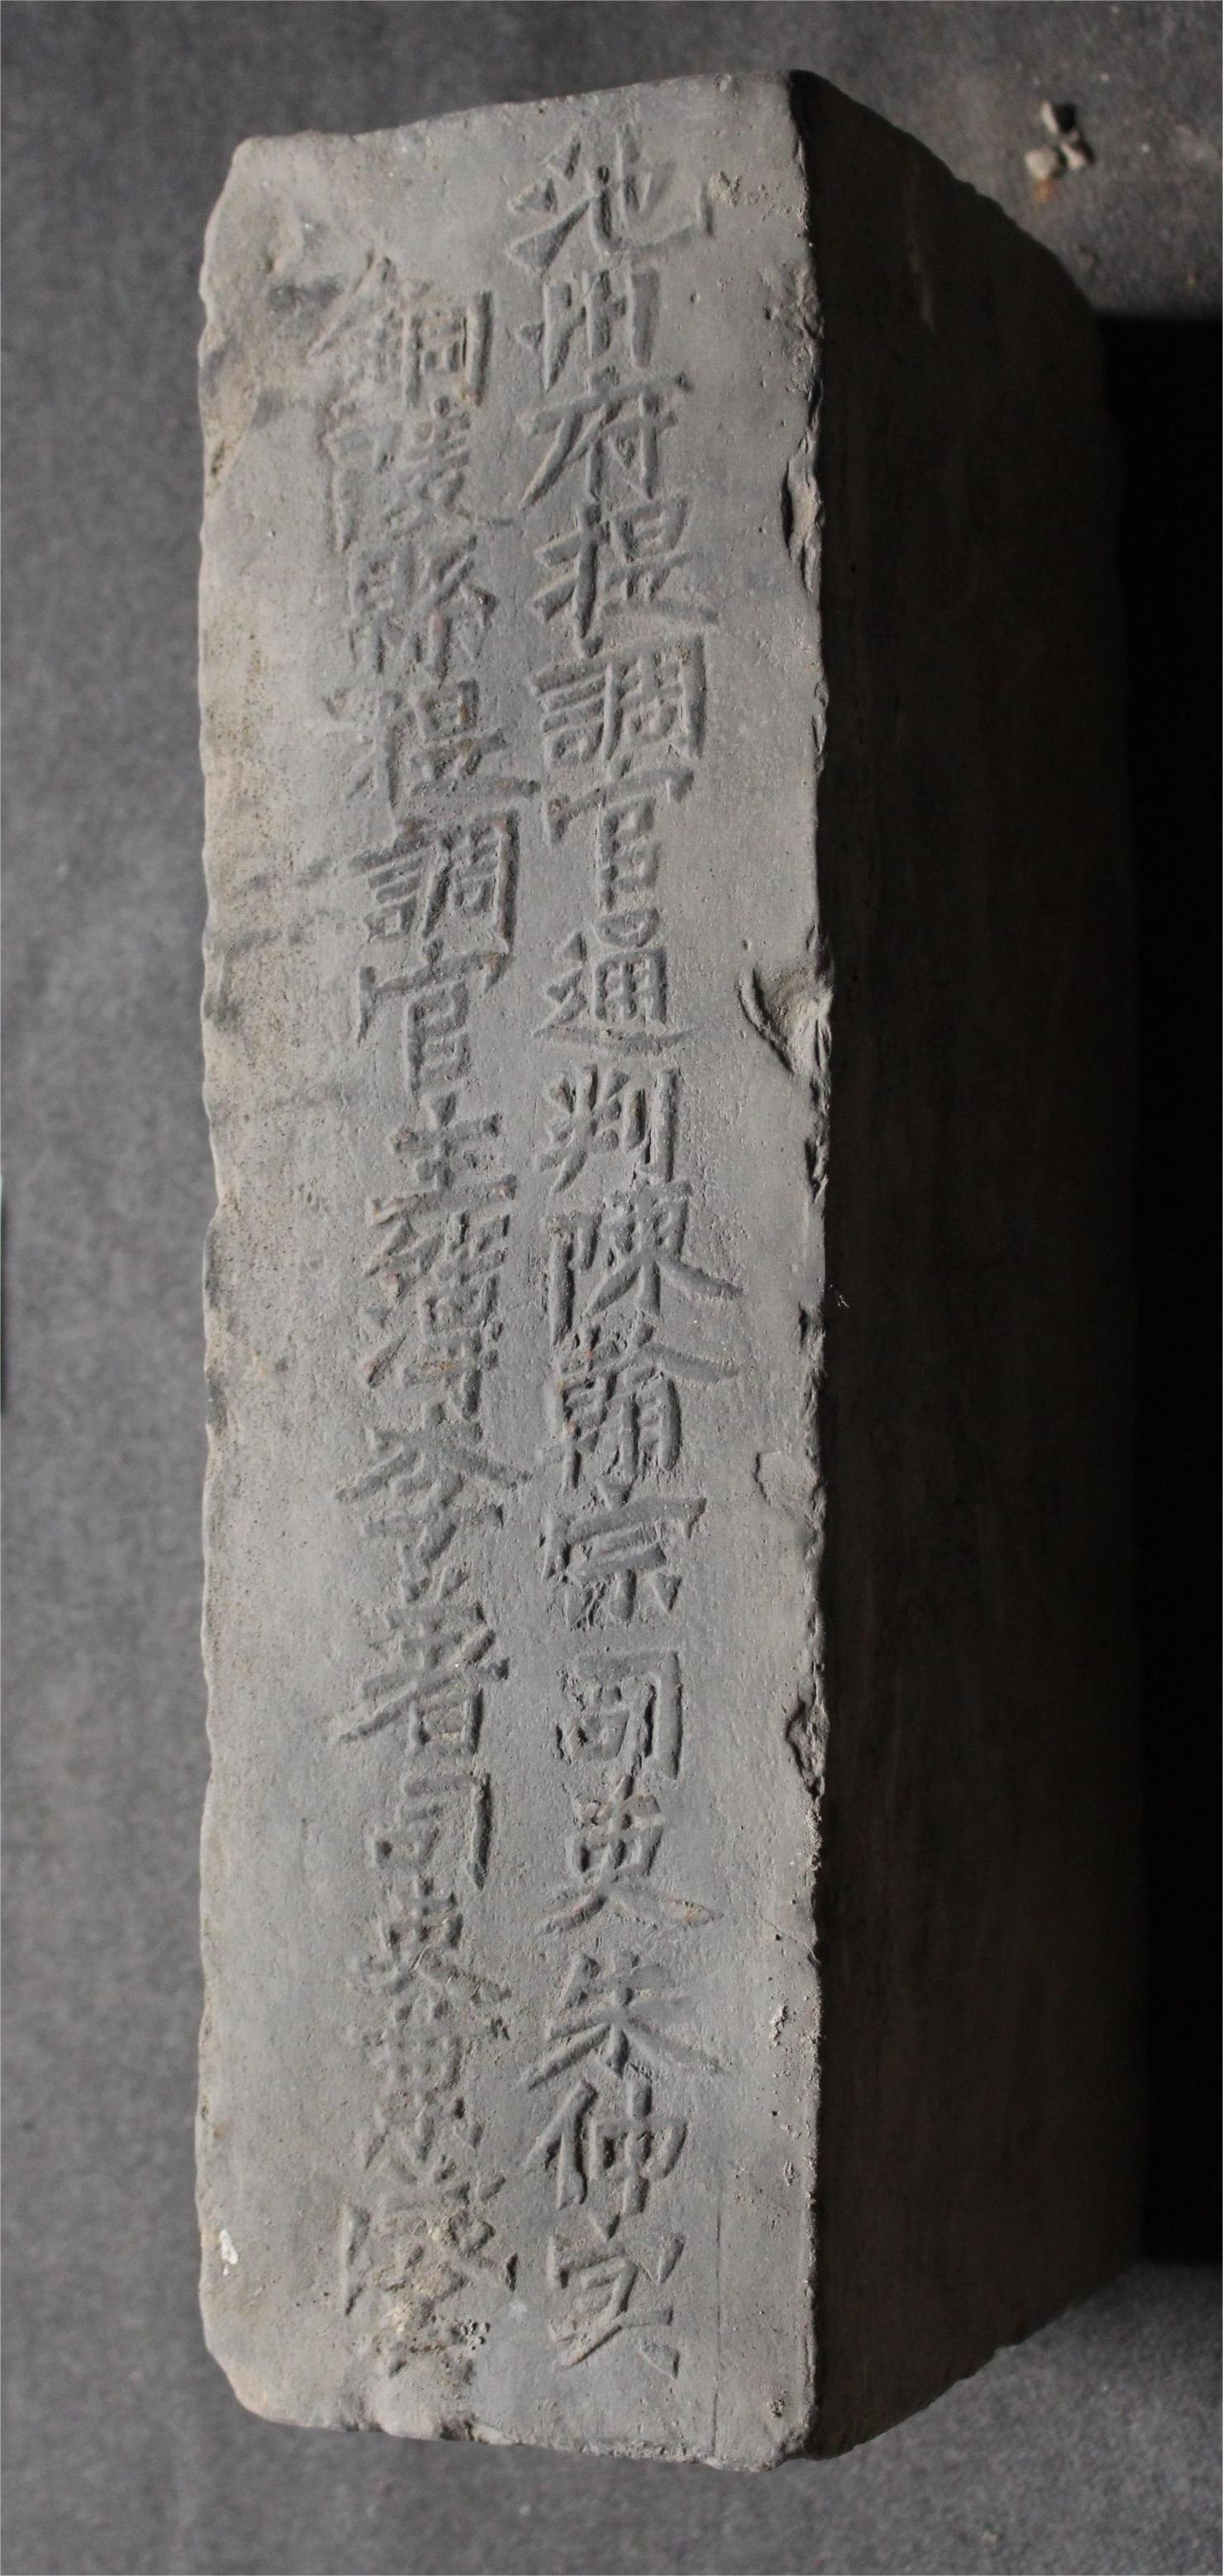 池州府提調官通判陳翰宗司吏朱仲実
銅陵縣提調官主簿李著司吏